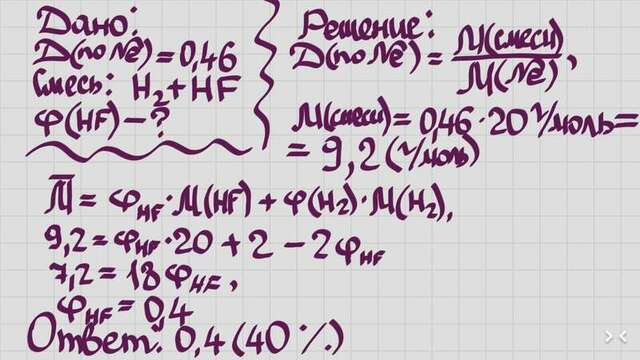 Дано:
D(по Ne) = 0,46
Смесь: H₂ + HF
φ(HF) – ?
Решение:
D(по Ne) = M(смеси) / M(Ne),
M(смеси) = 0,46 · 20 г/моль =
= 9,2 (г/моль)
M̅ = φHF · M(HF) + φ(H₂) · M(H₂),
9,2 = φHF · 20 + 2 – 2φHF
7,2 = 18 φHF,
φHF = 0,4
Ответ: 0,4 (40 %)